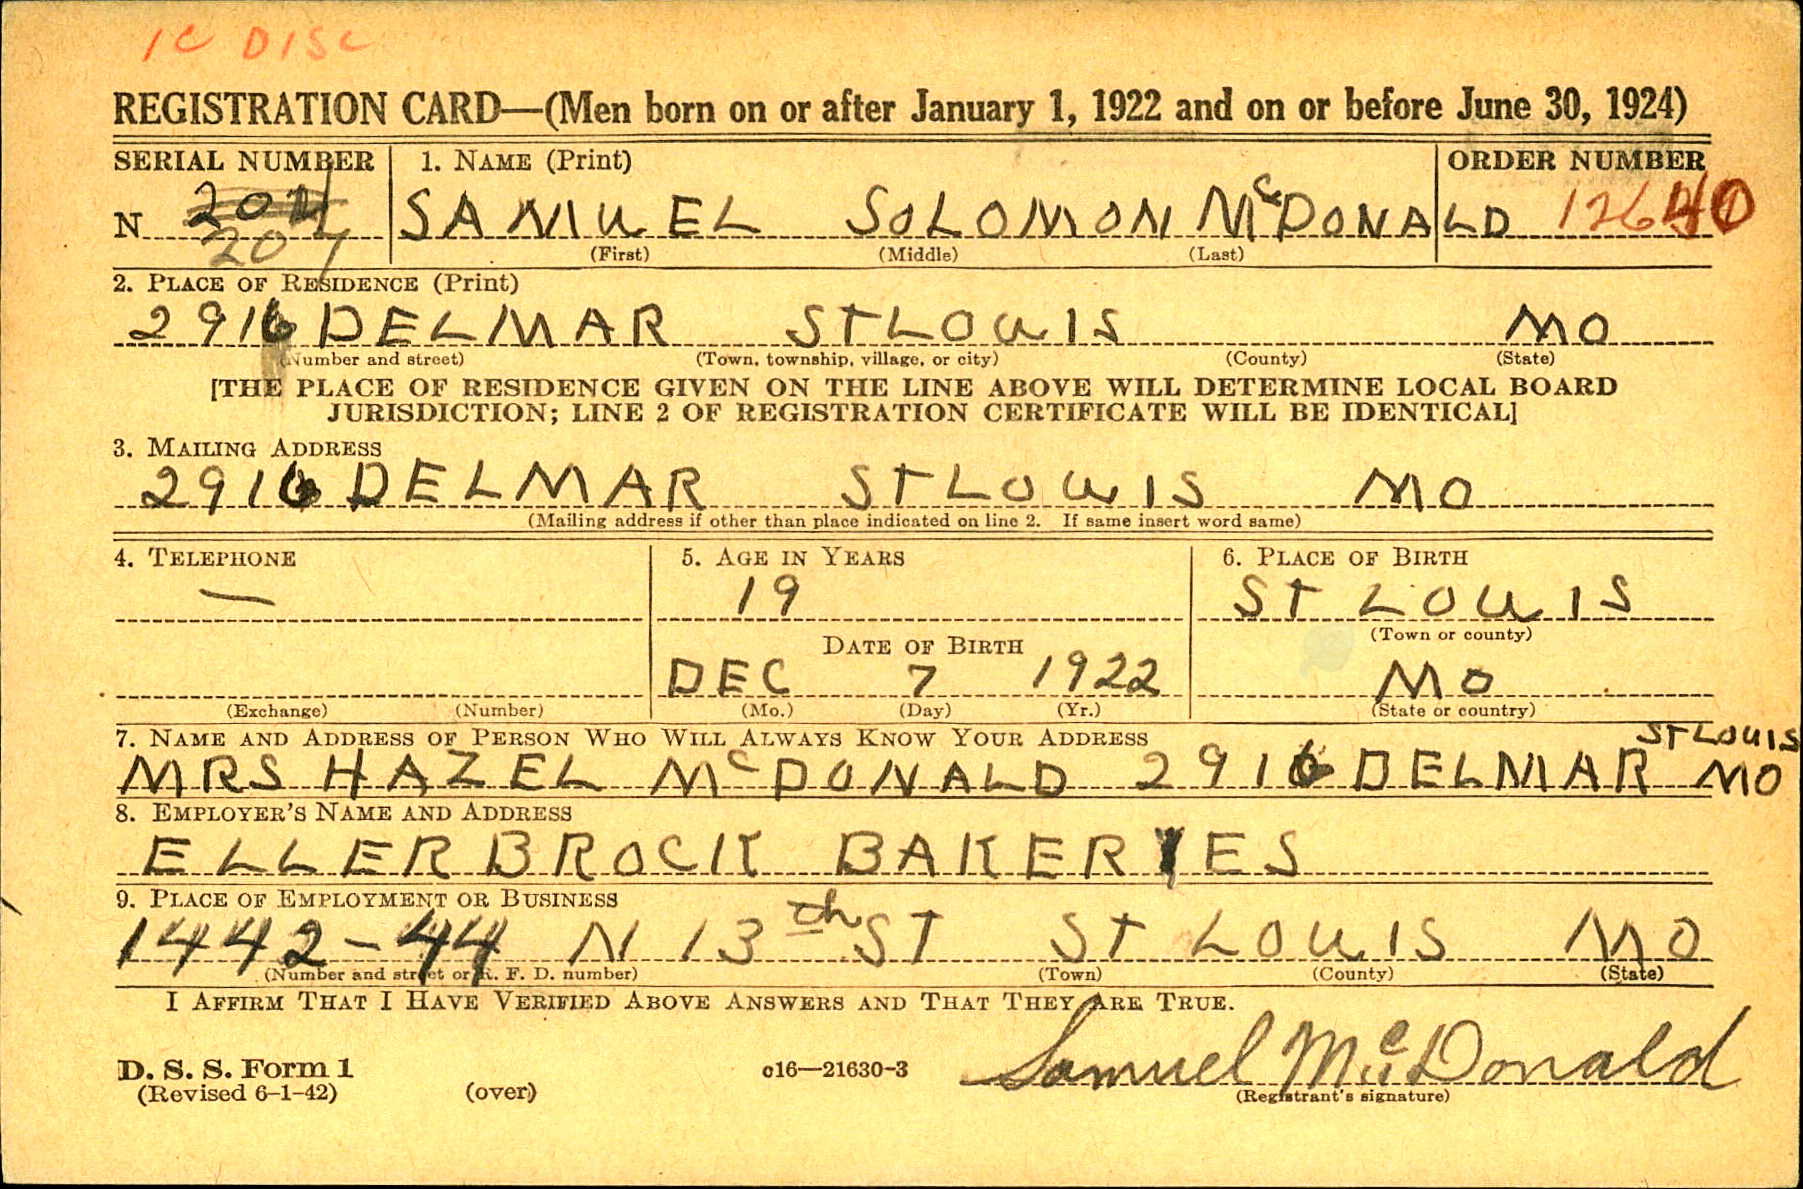 1C DISC
REGISTRATION CARD—(Men born on or after January 1, 1922 and on or before June 30, 1924)
SERIAL NUMBER 1. NAME (Print) ORDER NUMBER
N 204 SAMUEL SOLOMON McDONALD 12640
207
(First) (Middle) (Last)
2. PLACE OF RESIDENCE (Print)
2916 DELMAR ST LOUIS MO
(Number and street) (Town, township, village, or city) (County) (State)
[THE PLACE OF RESIDENCE GIVEN ON THE LINE ABOVE WILL DETERMINE LOCAL BOARD
JURISDICTION; LINE 2 OF REGISTRATION CERTIFICATE WILL BE IDENTICAL]
3. MAILING ADDRESS
2916 DELMAR ST LOUIS MO
(Mailing address if other than place indicated on line 2. If same insert word same)
4. TELEPHONE 5. AGE IN YEARS 6. PLACE OF BIRTH
— 19 ST LOUIS
DATE OF BIRTH (Town or county)
DEC 7 1922 MO
(Exchange) (Number) (Mo.) (Day) (Yr.) (State or country)
7. NAME AND ADDRESS OF PERSON WHO WILL ALWAYS KNOW YOUR ADDRESS ST LOUIS
MRS HAZEL McDONALD 2916 DELMAR MO
8. EMPLOYER'S NAME AND ADDRESS
ELLERBROCK BAKERIES
9. PLACE OF EMPLOYMENT OR BUSINESS
1442-44 N 13th ST ST LOUIS MO
(Number and street or R. F. D. number) (Town) (County) (State)
I AFFIRM THAT I HAVE VERIFIED ABOVE ANSWERS AND THAT THEY ARE TRUE.
D. S. S. Form 1 c16—21630-3 Samuel McDonald
(Revised 6-1-42) (over) (Registrant's signature)